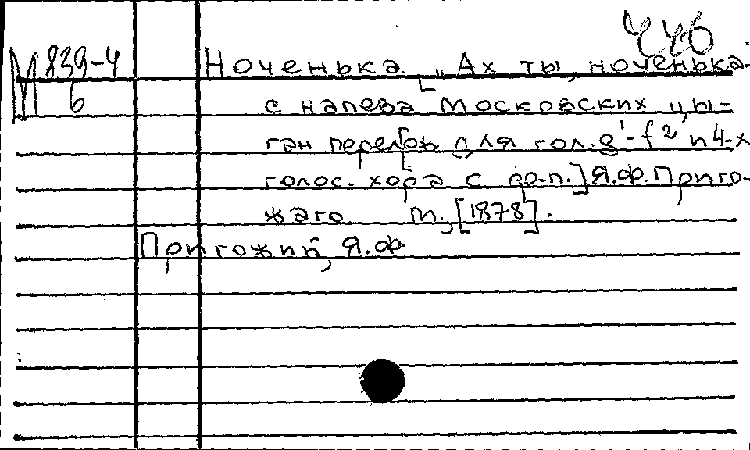 446
М 839-4
6
Ноченька. [„Ах ты, ноченька.
с напева московских цы-
ган перелож для гол. e'-f²и 4-х
голос. хора с ф-п.] Я.Ф. Приго-
жаго. М., [1878].
Пригожий, Я.Ф